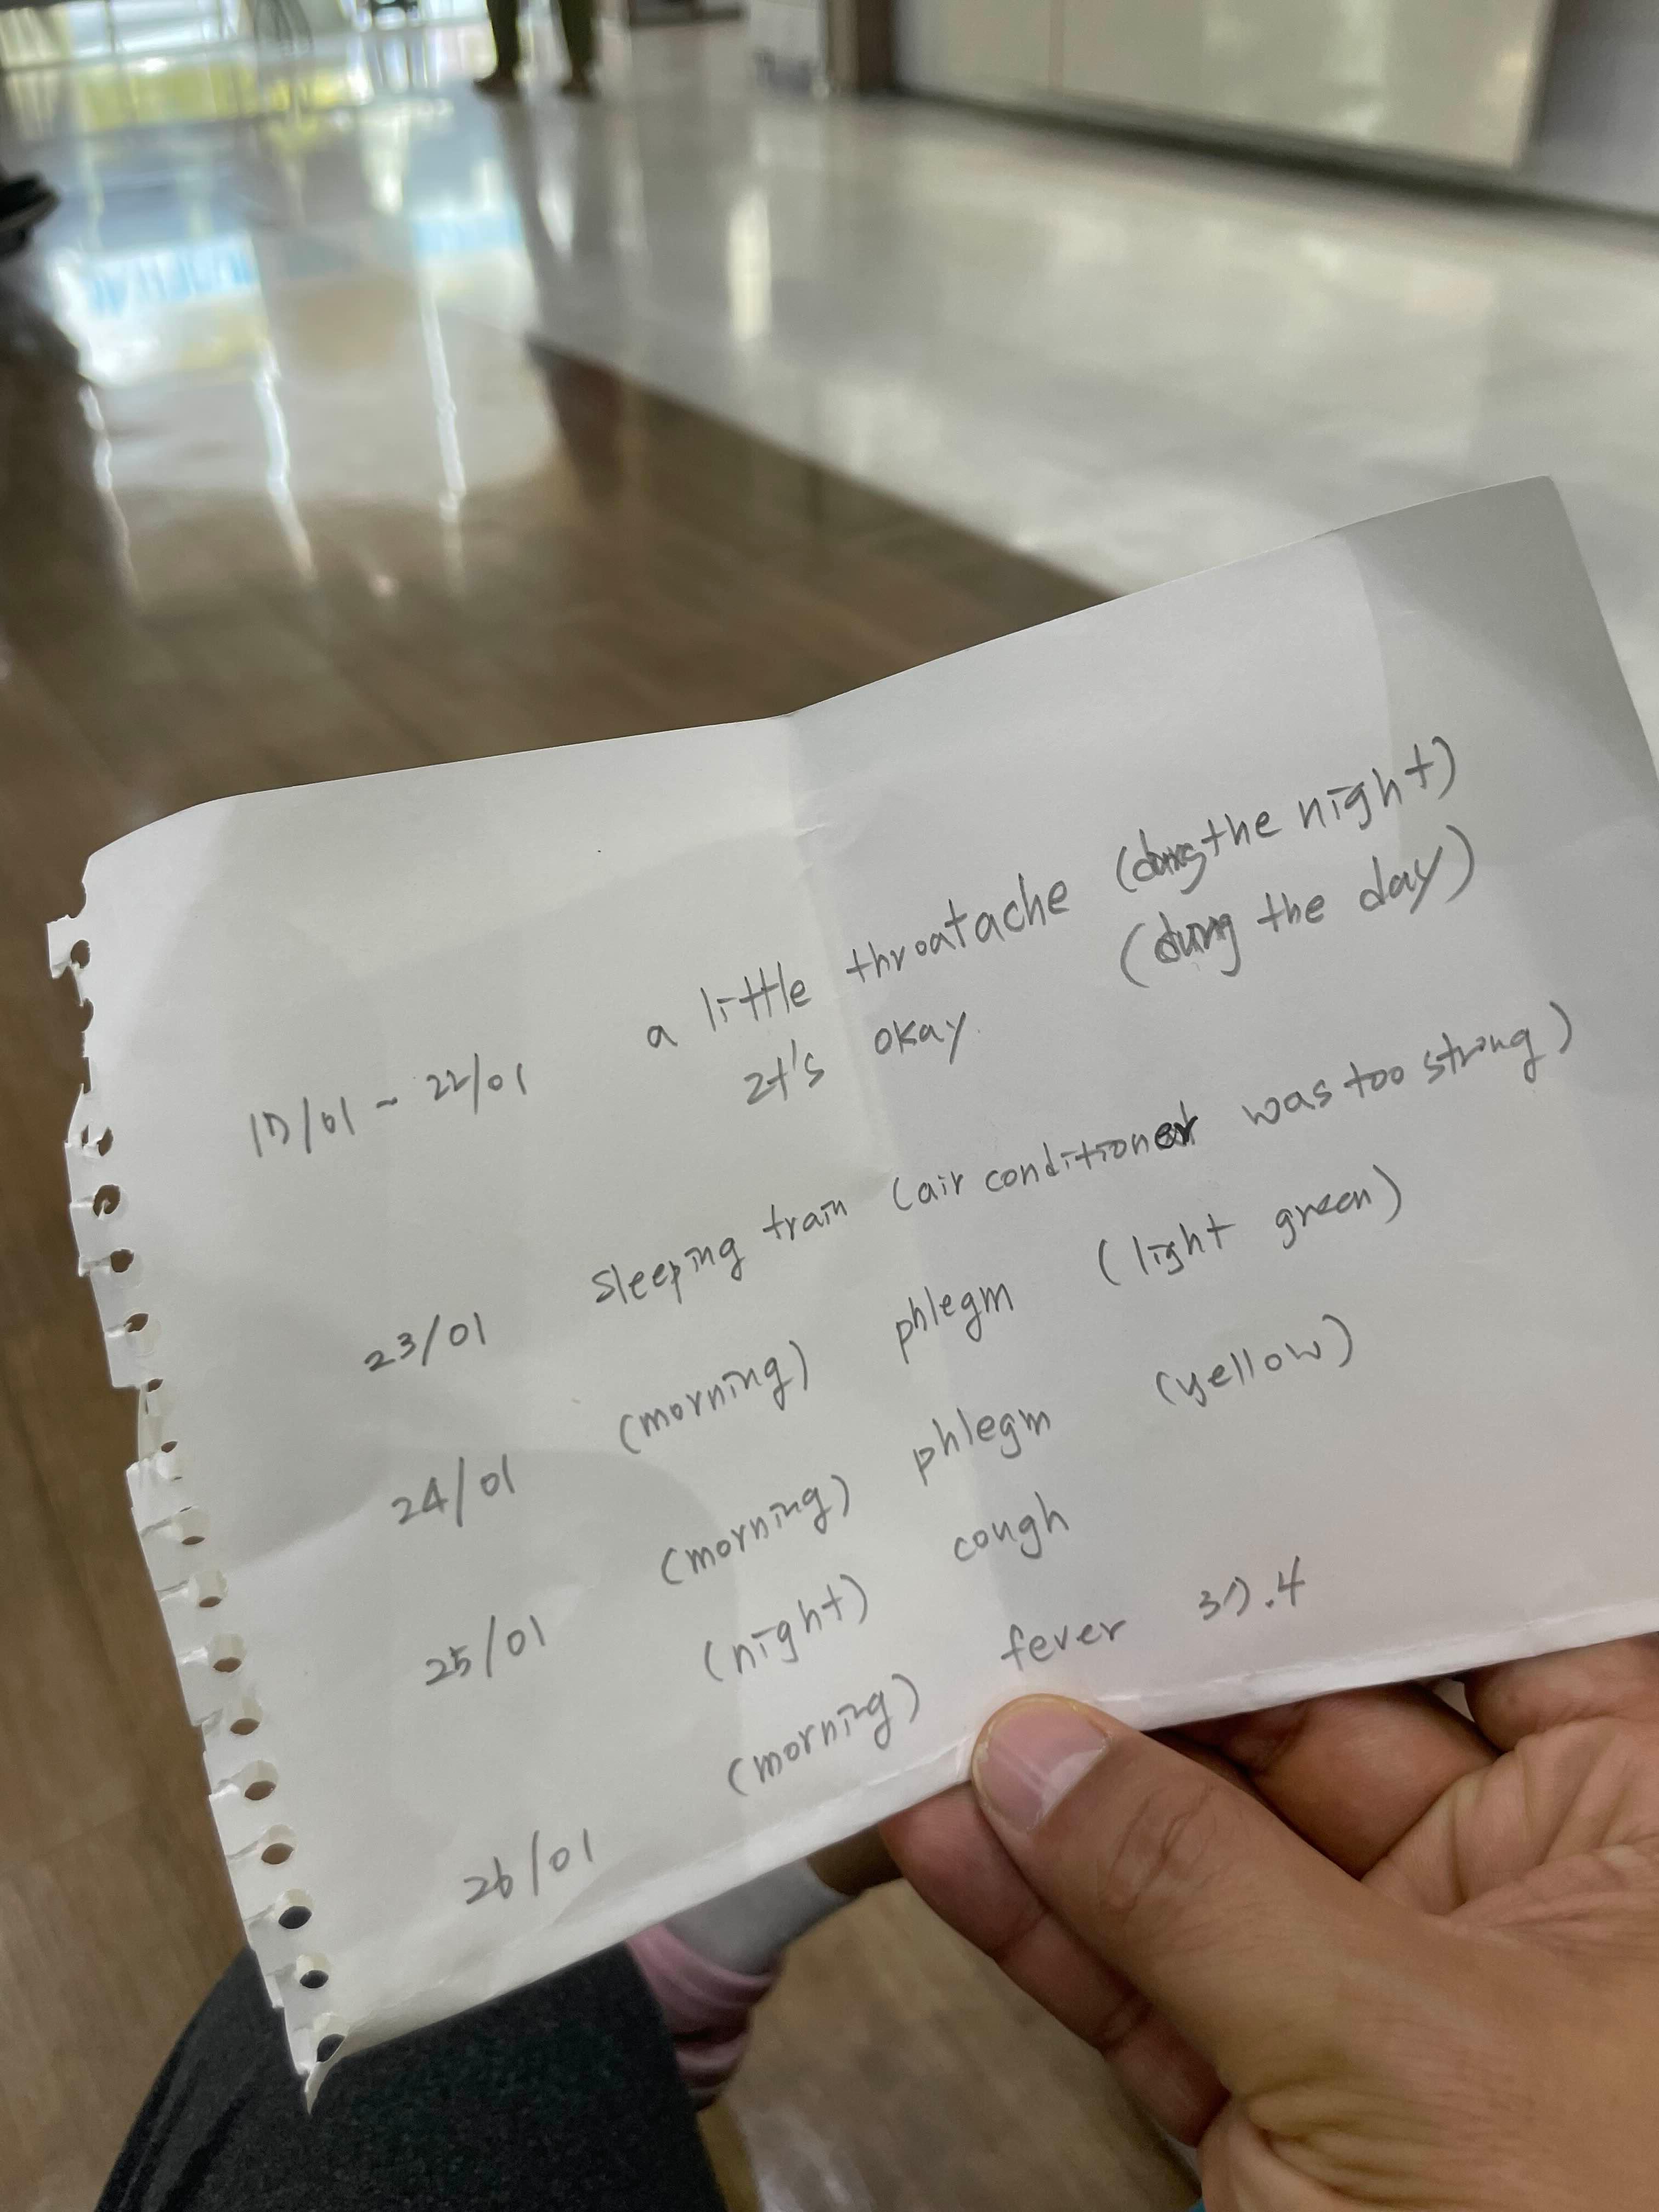 17/01 ~ 22/01 a little throatache (during the night)
It's okay (during the day)
23/01 sleeping train (air conditioner was too strong)
24/01 (morning) phlegm (light green)
25/01 (morning) phlegm (yellow)
(night) cough
26/01 (morning) fever 37.4